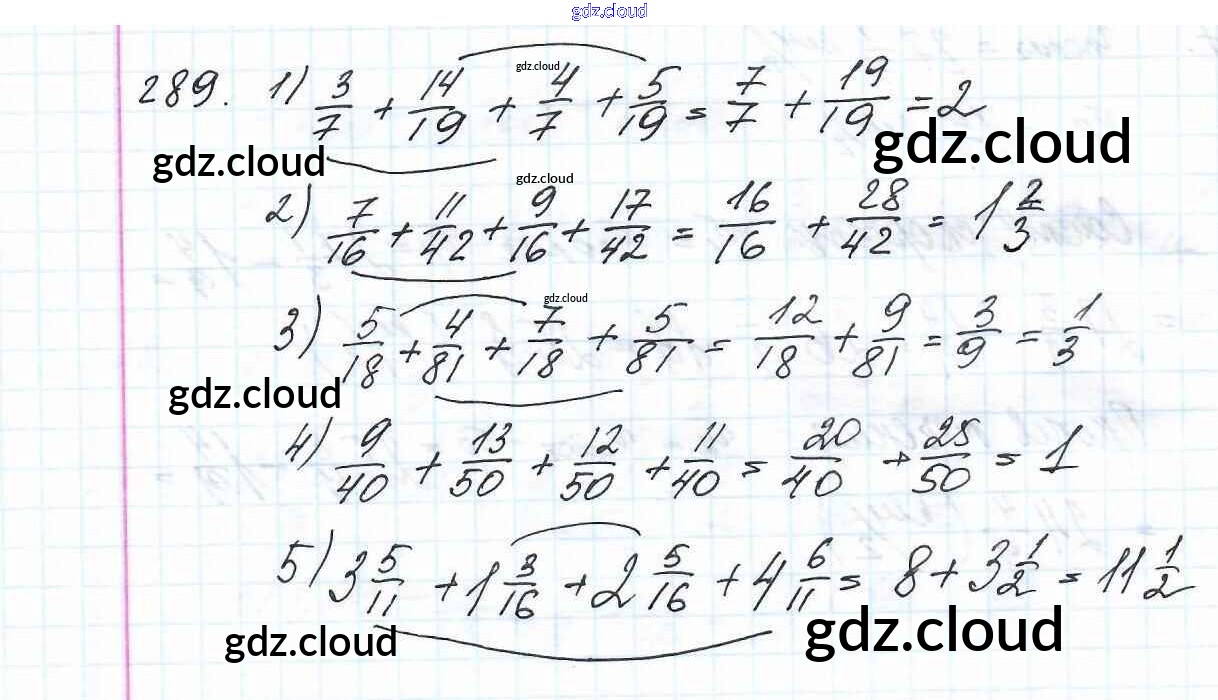 gdz.cloud
289. 1) 3/7 + 14/19 + 4/7 + 5/19 = 7/7 + 19/19 = 2
gdz.cloud
gdz.cloud
gdz.cloud
gdz.cloud
2) 7/16 + 11/42 + 9/16 + 17/42 = 16/16 + 28/42 = 1 2/3
gdz.cloud
3) 5/18 + 4/81 + 7/18 + 5/81 = 12/18 + 9/81 = 3/9 = 1/3
gdz.cloud
4) 9/40 + 13/50 + 12/50 + 11/40 = 20/40 + 25/50 = 1
5) 3 5/11 + 1 3/16 + 2 5/16 + 4 6/11 = 8 + 3 1/2 = 11 1/2
gdz.cloud
gdz.cloud